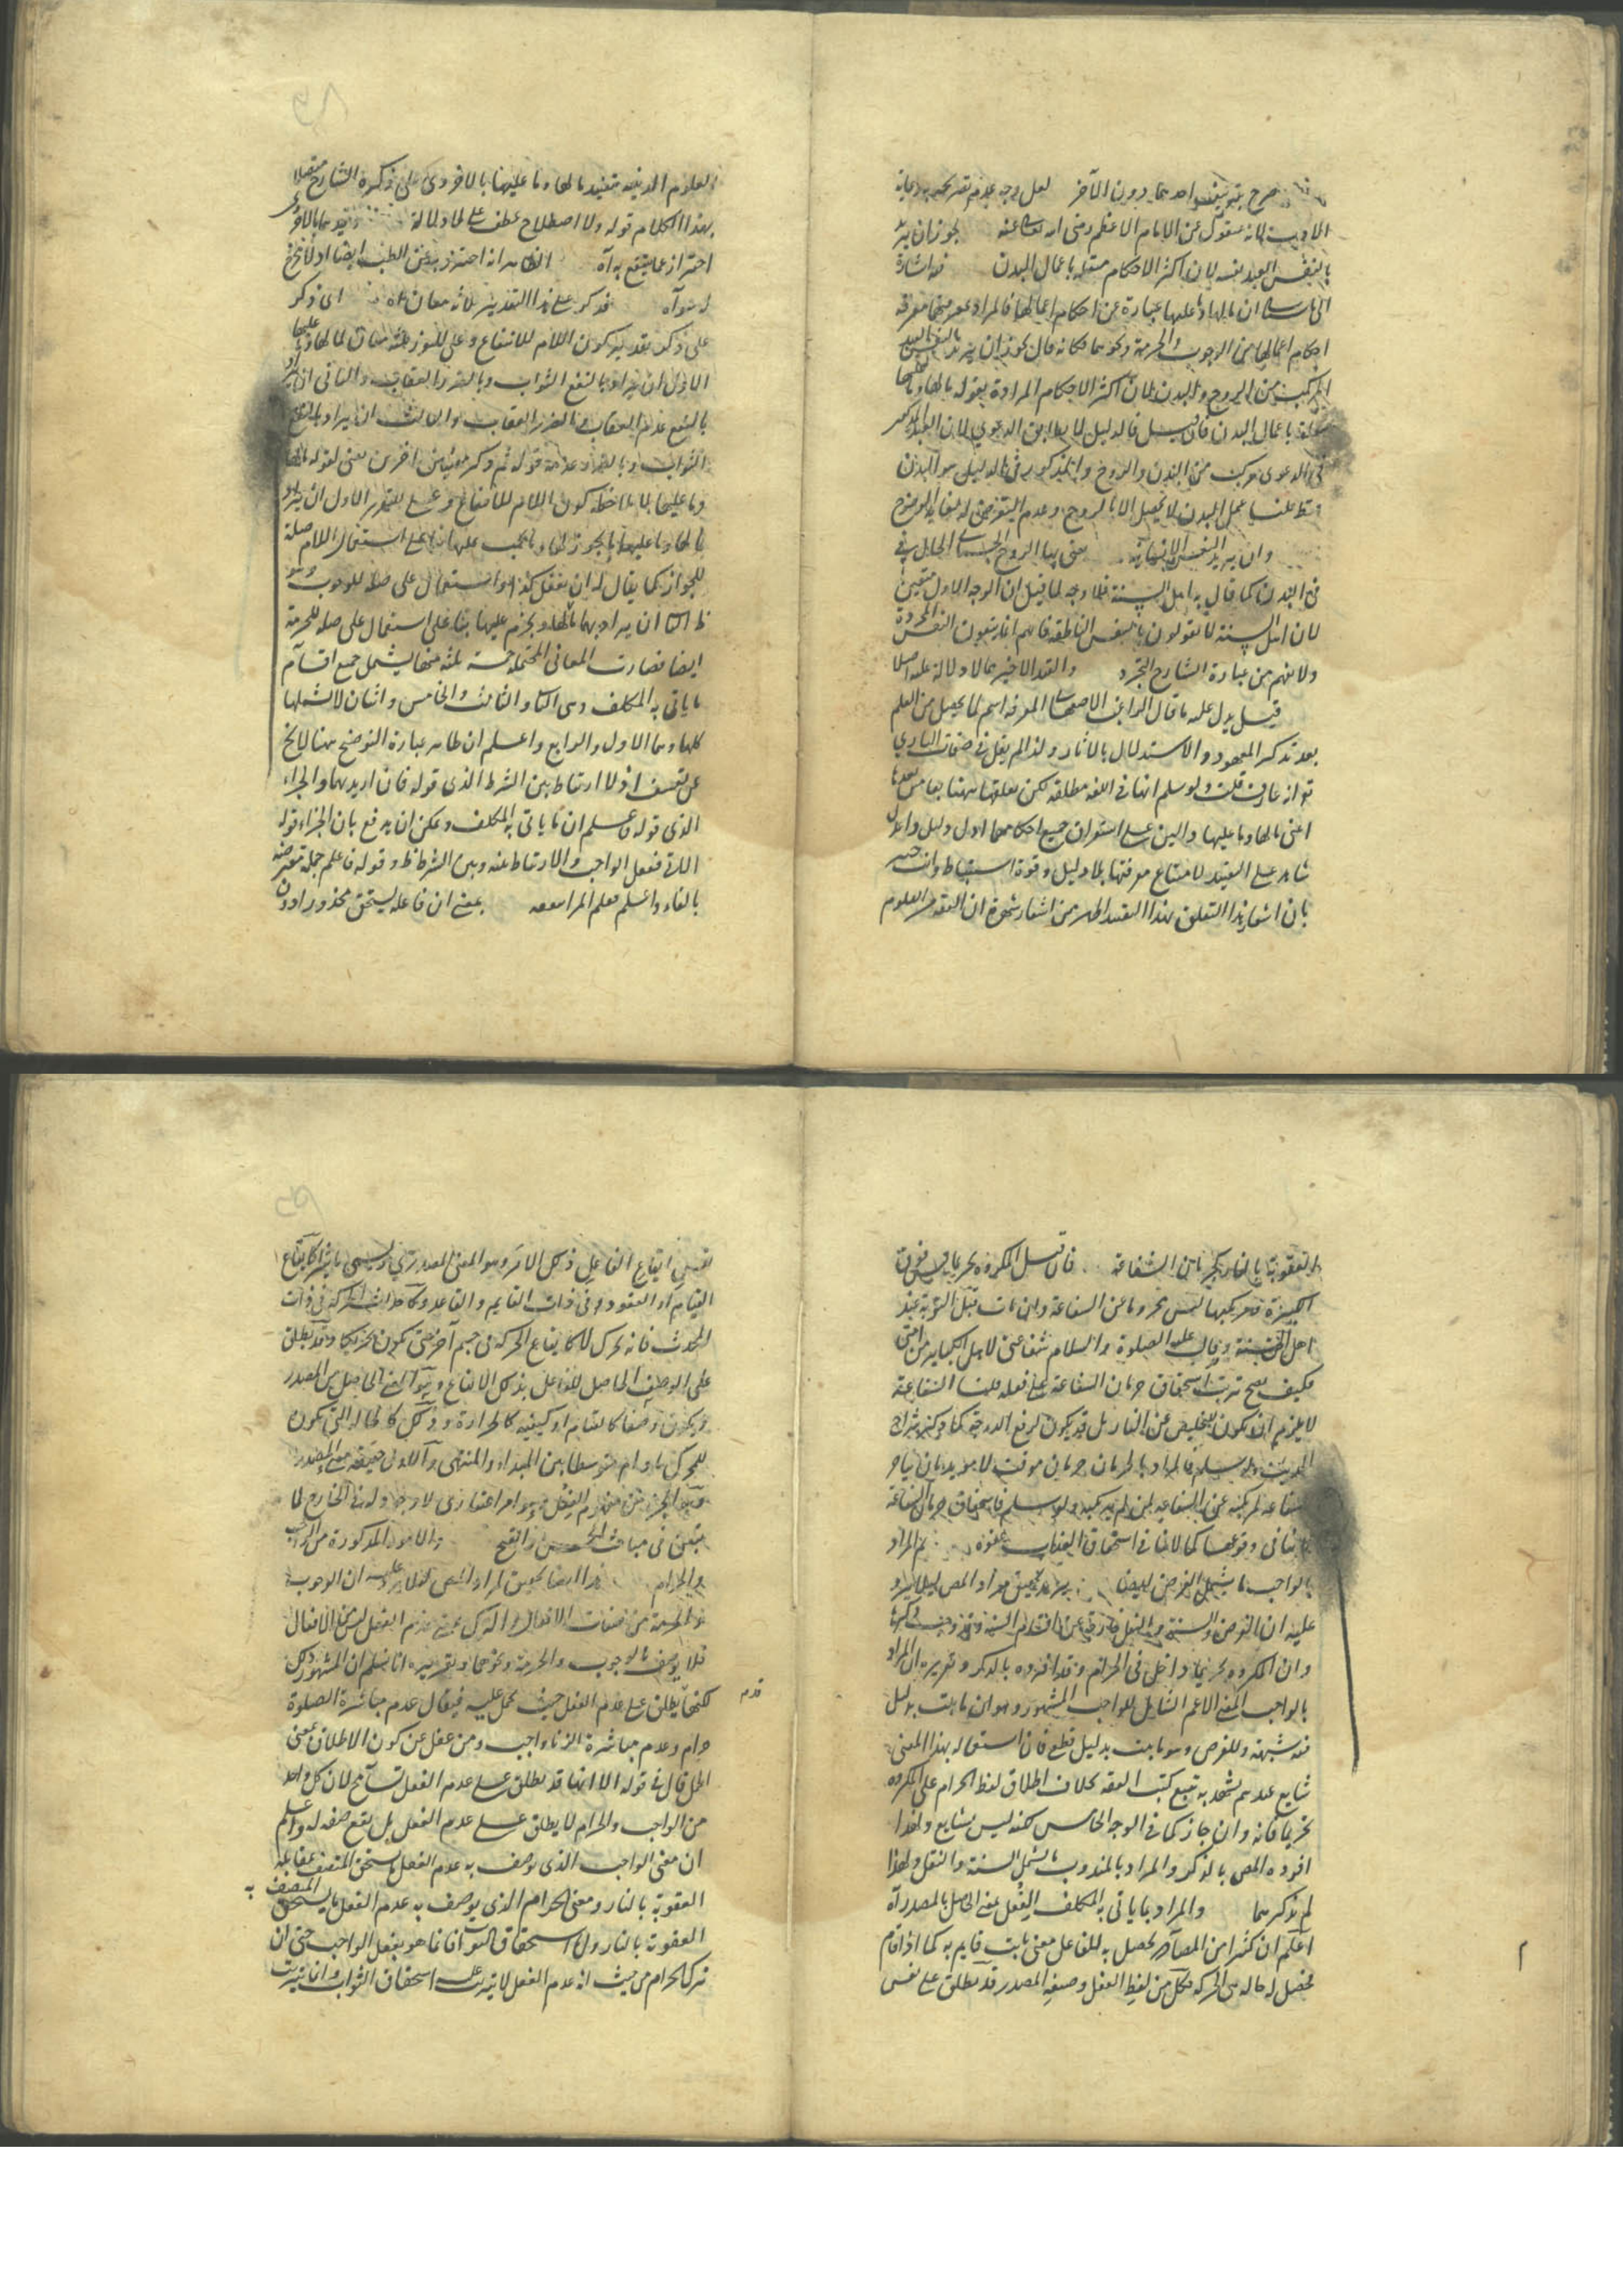 صرح بتزييف احدهما دون الآخر لعل وجه عدم تصريحه بزيافة
الاول انه منقول عن الامام الاعظم رضى الله تعالى عنه يجوز ان يريد
بالنفس العبد نفسه لان اكثر الاحكام متعلقه باعمال البدن فيه اشارة
الى ان مالها وما عليها عبارة عن احكام اعمالها فالمراد بمعرفتها معرفة
احكام اعمالها من الوجوب والحرمة ونحوهما فكانه قال يجوز ان يريد بالنفس العبد
المركب من الروح والبدن لان اكثر الاحكام المرادة بقوله مالها وما عليها
متعلقة باعمال البدن فان قيل فالدليل لا يطابق الدعوى لان العبد المذكور
فى الدعوى مركب من البدن والروح والمذكور فى الدليل هو البدن
فقط قلنا عمل البدن لا يحصل الا بالروح وعدم التعرض له لغاية الوضوح
وان يريد النفس الانسانية يعنى بها الروح
فى البدن كما قال به اهل السنة فلا وجه لما قيل ان الوجه الاول متعين
لان اهل السنة لا يقولون بالنفس الناطقة فانهم انما ينفون النفس المجردة
ولا يفهم من عبارة الشارح التجرد والقيد الاخير مما لا دلالة عليه اصلا
قيل يدل عليه ما قال الراغب الاصفهانى المعرفة اسم لما يحصل من العلم
بعد تذكر المعهود والاستدلال بالآثار ولذا لم يقل فى صفات البارى
تعالى انه عارف قلت ولو سلم انها فى اللغة مطلقة لكن تعلقها ههنا بما بعدها
اعنى مالها وما عليها والين على استغراق جميع احكامها اول دليل واعدل
شاهد على التقييد لامتناع معرفتها بلا دليل وقوة استنباط وانت خبير
بان اشعار هذا التعلق بهذا التقييد اظهر من اشعار شهرة ان الفقه من العلوم
العلوم الدينية بتقييد مالها وما عليها بالاخروى على ذكره الشارح متصلا
بهذا الكلام قوله ولا اصطلاح عطف على لما دلالة وتقييدهما بالاخروى
احترازا عما ينتفع به آه الظاهر انه احترز به عن الطب ايضا اذ لا يخرج
له سواه فذكر على هذا التقدير ثلثة معان آه اى ذكر
على ذكر تقدير كون اللام للانتفاع وعلى للضرر ثلثة معان لما لها وما عليها
الاول ان يراد بالنفع الثواب وبالضرر العقاب والثانى ان يراد
بالنفع عدم العقاب وبالضرر العقاب والثالث ان يراد بالنفع
الثواب وبالضرر عدمه قوله ثم ذكر معنيين آخرين يعنى لقوله مالها
وما عليها بلا ملاحظة كون اللام للانتفاع وعلى للضرر الاول ان يراد
بما لها وما عليها ما يجوز لها وما يجب عليها بناء على استعمال اللام صلة
للجواز كما يقال له ان يفعل كذا واستعمال على صلة للوجوب وهو
ظ الثانى ان يراد بهما ما يجوز لها ويحرم عليها بناء على استعمال على صلة للحرمة
ايضا فصارت المعانى المحتملة خمسة ثلثة منها يشمل جميع اقسام
ما ياتى به المكلف وهى الثانى والثالث والخامس واثنان لا يشملها
كلها وهما الاول والرابع واعلم ان ظاهر عبارة التوضيح ههنا لا يخ
عن تعسف اذ لا ارتباط بين الشرط الذى قوله فان اريد بهما والجزاء
الذى قوله فاعلم ان ما ياتى به المكلف ويمكن ان يدفع بان الجزاء قوله
الآتى ففعل الواجب والارتباط بينه وبين الشرط ظ وقوله فاعلم جملة معترضة
بالفاء واعلم فعلم المرء ينفعه بمعنى ان فاعله يستحق محذورا دون
العقوبة بالنار كحرمان الشفاعة فان قيل المكروه تحريما فوق
الكبيرة فمرتكبها ليس محروما عن الشفاعة وان مات قبل التوبة عند
اهل السنة وقال عليه الصلوة والسلام شفاعتى لاهل الكبائر من امتى
فكيف يصح ترتب استحقاق حرمان الشفاعة على فعله قلنا الشفاعة
لا يلزم ان يكون للتخليص عن النار بل قد يكون لرفع الدرجة كما ذكره شراح
الحديث ولو سلم فالمراد بالحرمان حرمان موقت لا مؤبد بان يتاخر
شفاعة مرتكبه عن الشفاعة لمن لم يرتكبه ولو سلم فاستحقاق حرمان الشفاعة
لا ينافى وقوعها كما لا ينافى استحقاق العقاب عفوه ثم المراد
بالواجب ما يشمل الفرض ايضا يريد تحقيق مراد المص لئلا يرد
عليه ان الفرض والسنة والنفل خارجة عن اقسام الستة فى ذكرها
وان المكروه تحريما داخل فى الحرام وقد افرده بالذكر وتقريره ان المراد
بالواجب المعنى الاعم الشامل للواجب المشهور وهو ان ما ثبت بدليل
فيه شبهة وللفرض وهو ما ثبت بدليل قطع فان استعماله بهذا المعنى
شايع عندهم يشهد به تتبع كتب الفقه بخلاف اطلاق لفظ الحرام على المكروه
تحريما فانه وان جاز كما فى الوجه الخامس لكنه ليس بشايع ولهذا
افرده المص بالذكر والمراد بالمندوب ما يشمل السنة والنفل ولهذا
لم يذكرهما والمراد بما ياتى به المكلف الفعل بمعنى الحاصل بالمصدر آه
اعلم ان كثيرا من المصادر يحصل به للفاعل معنى ثابت قايم به كما اذا قام
يحصل له حالة هى الحركة فكل من لفظ الفعل وصيغة المصدر قد يطلق على نفس
نفس ايقاع الفاعل ذلك الامر وهو المعنى المصدرى ويسمى تاثيرا كايقاع
القيام او القعود فى ذات القايم والقاعد وكاحداث الحركة فى ذات
المحدث فانه تحرك لا كايقاع الحركة فى جسم آخر حتى يكون تحريكا وقد يطلق
على الوصف الحاصل للفاعل بذلك الايقاع وهو المعنى الحاصل من المصدر
ويكون وضعا كالقيام او كيفية كالحرارة وذلك كالحالة التى يكون
للمتحرك ما دام متوسطا بين المبداء والمنتهى والاول حقيقة معنى المصدر
وهو الجزء من مفهوم الفعل وهو امر اعتبارى لا وجود له فى الخارج لما
تبين فى مباحث الحسن والقبح والامور المذكورة من الواجب
والحرام هذا ايضا تحقيق لمراد المص لئلا يرد عليه ان الوجوب
والحرمة من صفات الافعال والترك بمعنى عدم الفعل ليس من الافعال
فلا يوصف بالوجوب والحرمة ونحوهما وتقريره انا نسلم ان المشهور ذلك
لكنها يطلق على عدم الفعل حيث يحمل عليه فيقال عدم مباشرة الصلوة
حرام وعدم مباشرة الزنا واجب ومن غفل عن كون الاطلاق بمعنى
الحمل قال فى قوله الا انها قد يطلق على عدم الفعل تسامح لان كل واحد
من الواجب والحرام لا يطلق على عدم الفعل بل يقع صفة له واعلم
ان معنى الواجب الذى يوصف به عدم الفعل ما يستحق المتصف بمقابله
العقوبة بالنار ومعنى الحرام الذى يوصف به عدم الفعل ما يستحق المتصف به
العقوبة بالنار واستحقاق الثواب انما هو بفعل الواجب حتى ان
ترك الحرام من حيث انه عدم الفعل لا يترتب عليه استحقاق الثواب وانما يترتب